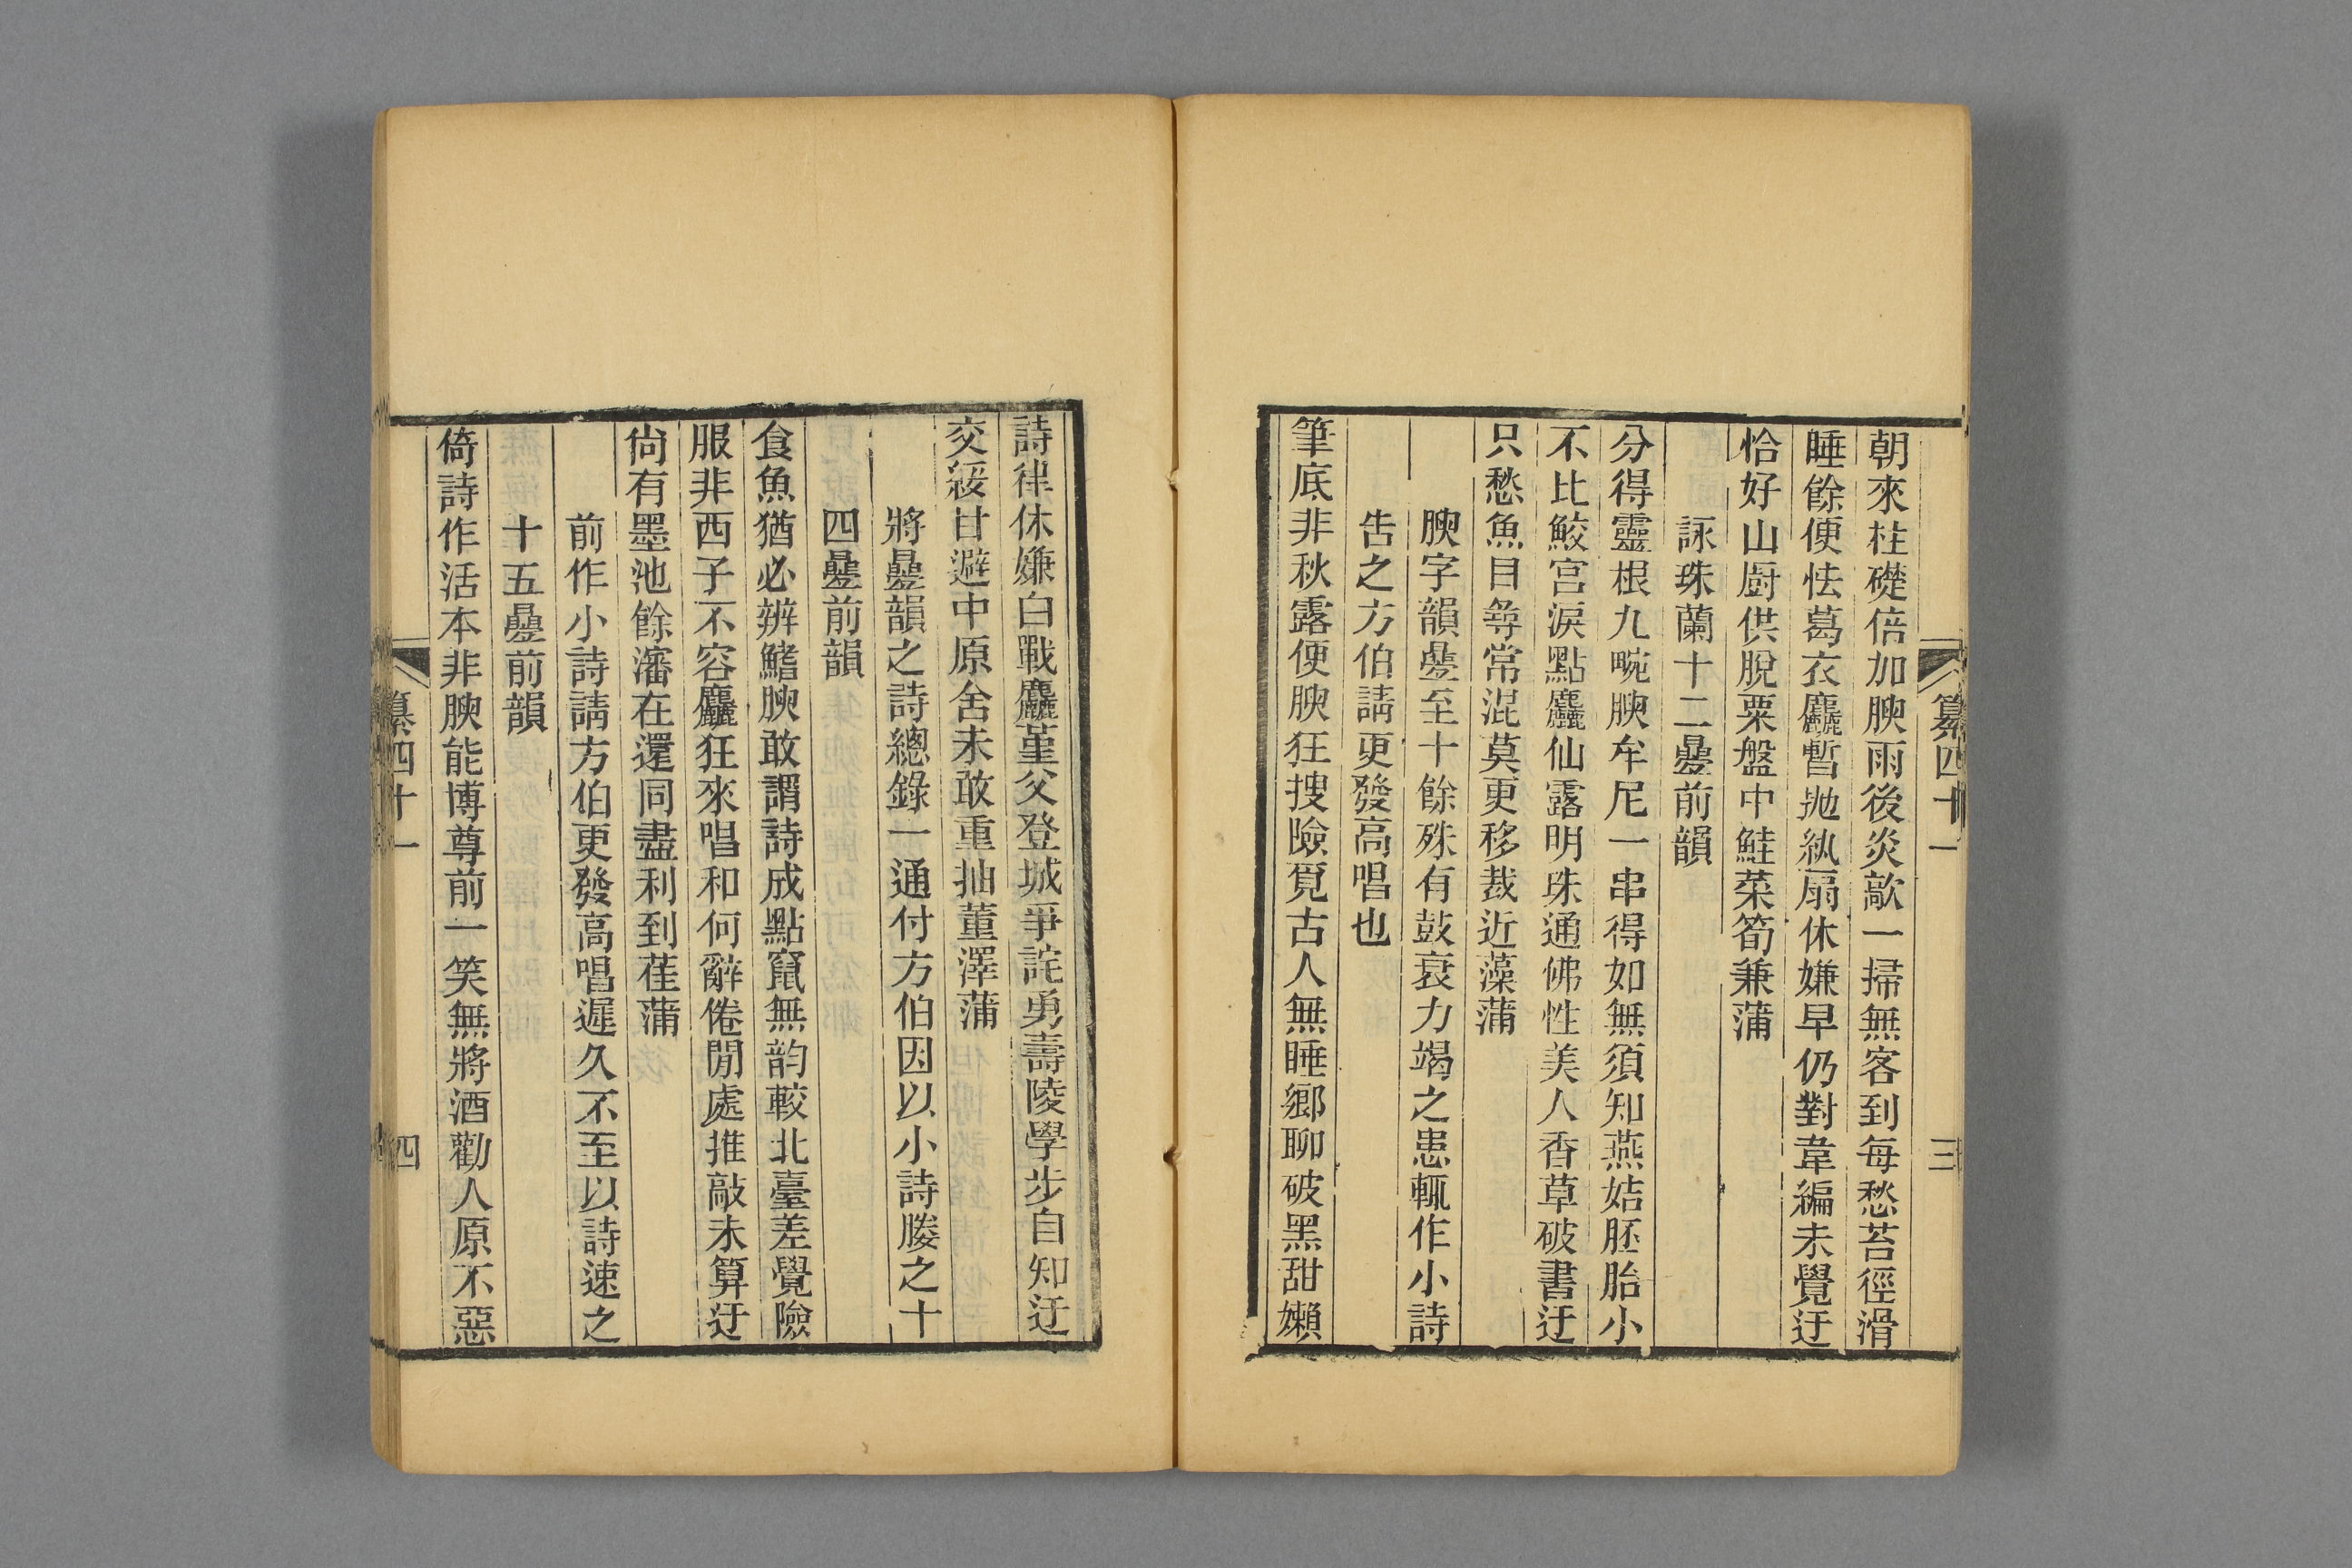 朝來柱礎倍加腴雨後炎歊一掃無客到每愁苔徑滑
睡餘便怯葛衣麤暫拋紈扇休嫌早仍對韋編未覺迂
恰好山廚供脫粟盤中鮭菜筍兼蒲
詠珠蘭十二疊前韻
分得靈根九畹腴牟尼一串得如無須知燕姞胚胎小
不比鮫宮淚點麤仙露明珠通佛性美人香草破書迂
只愁魚目尋常混莫更移栽近藻蒲
腴字韻疊至十餘殊有鼓衰力竭之患輒作小詩
告之方伯請更發高唱也
筆底非秋露便腴狂搜險覓古人無睡鄉聊破黑甜嬾
纂四十一
三
詩律休嫌白戰麤堇父登城爭詫勇壽陵學步自知迂
交綏甘避中原舍未敢重抽董澤蒲
將疊韻之詩總錄一通付方伯因以小詩媵之十
四疊前韻
食魚猶必辨鰭腴敢謂詩成點竄無韵較北臺差覺險
服非西子不容麤狂來唱和何辭倦閒處推敲未算迂
尙有墨池餘瀋在還同盡利到萑蒲
前作小詩請方伯更發高唱遲久不至以詩速之
十五疊前韻
倚詩作活本非腴能博尊前一笑無將酒勸人原不惡
纂四十一
四